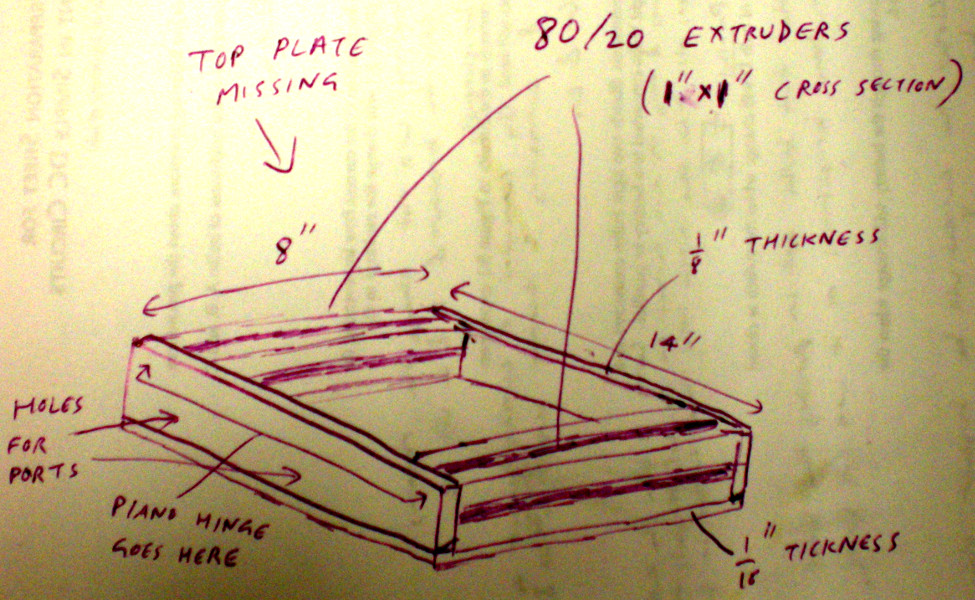 TOP PLATE
MISSING
80/20 EXTRUDERS
(1"x1" CROSS SECTION)
8"
1/8" THICKNESS
14"
HOLES
FOR
PORTS
PIANO HINGE
GOES HERE
1/16" TICKNESS